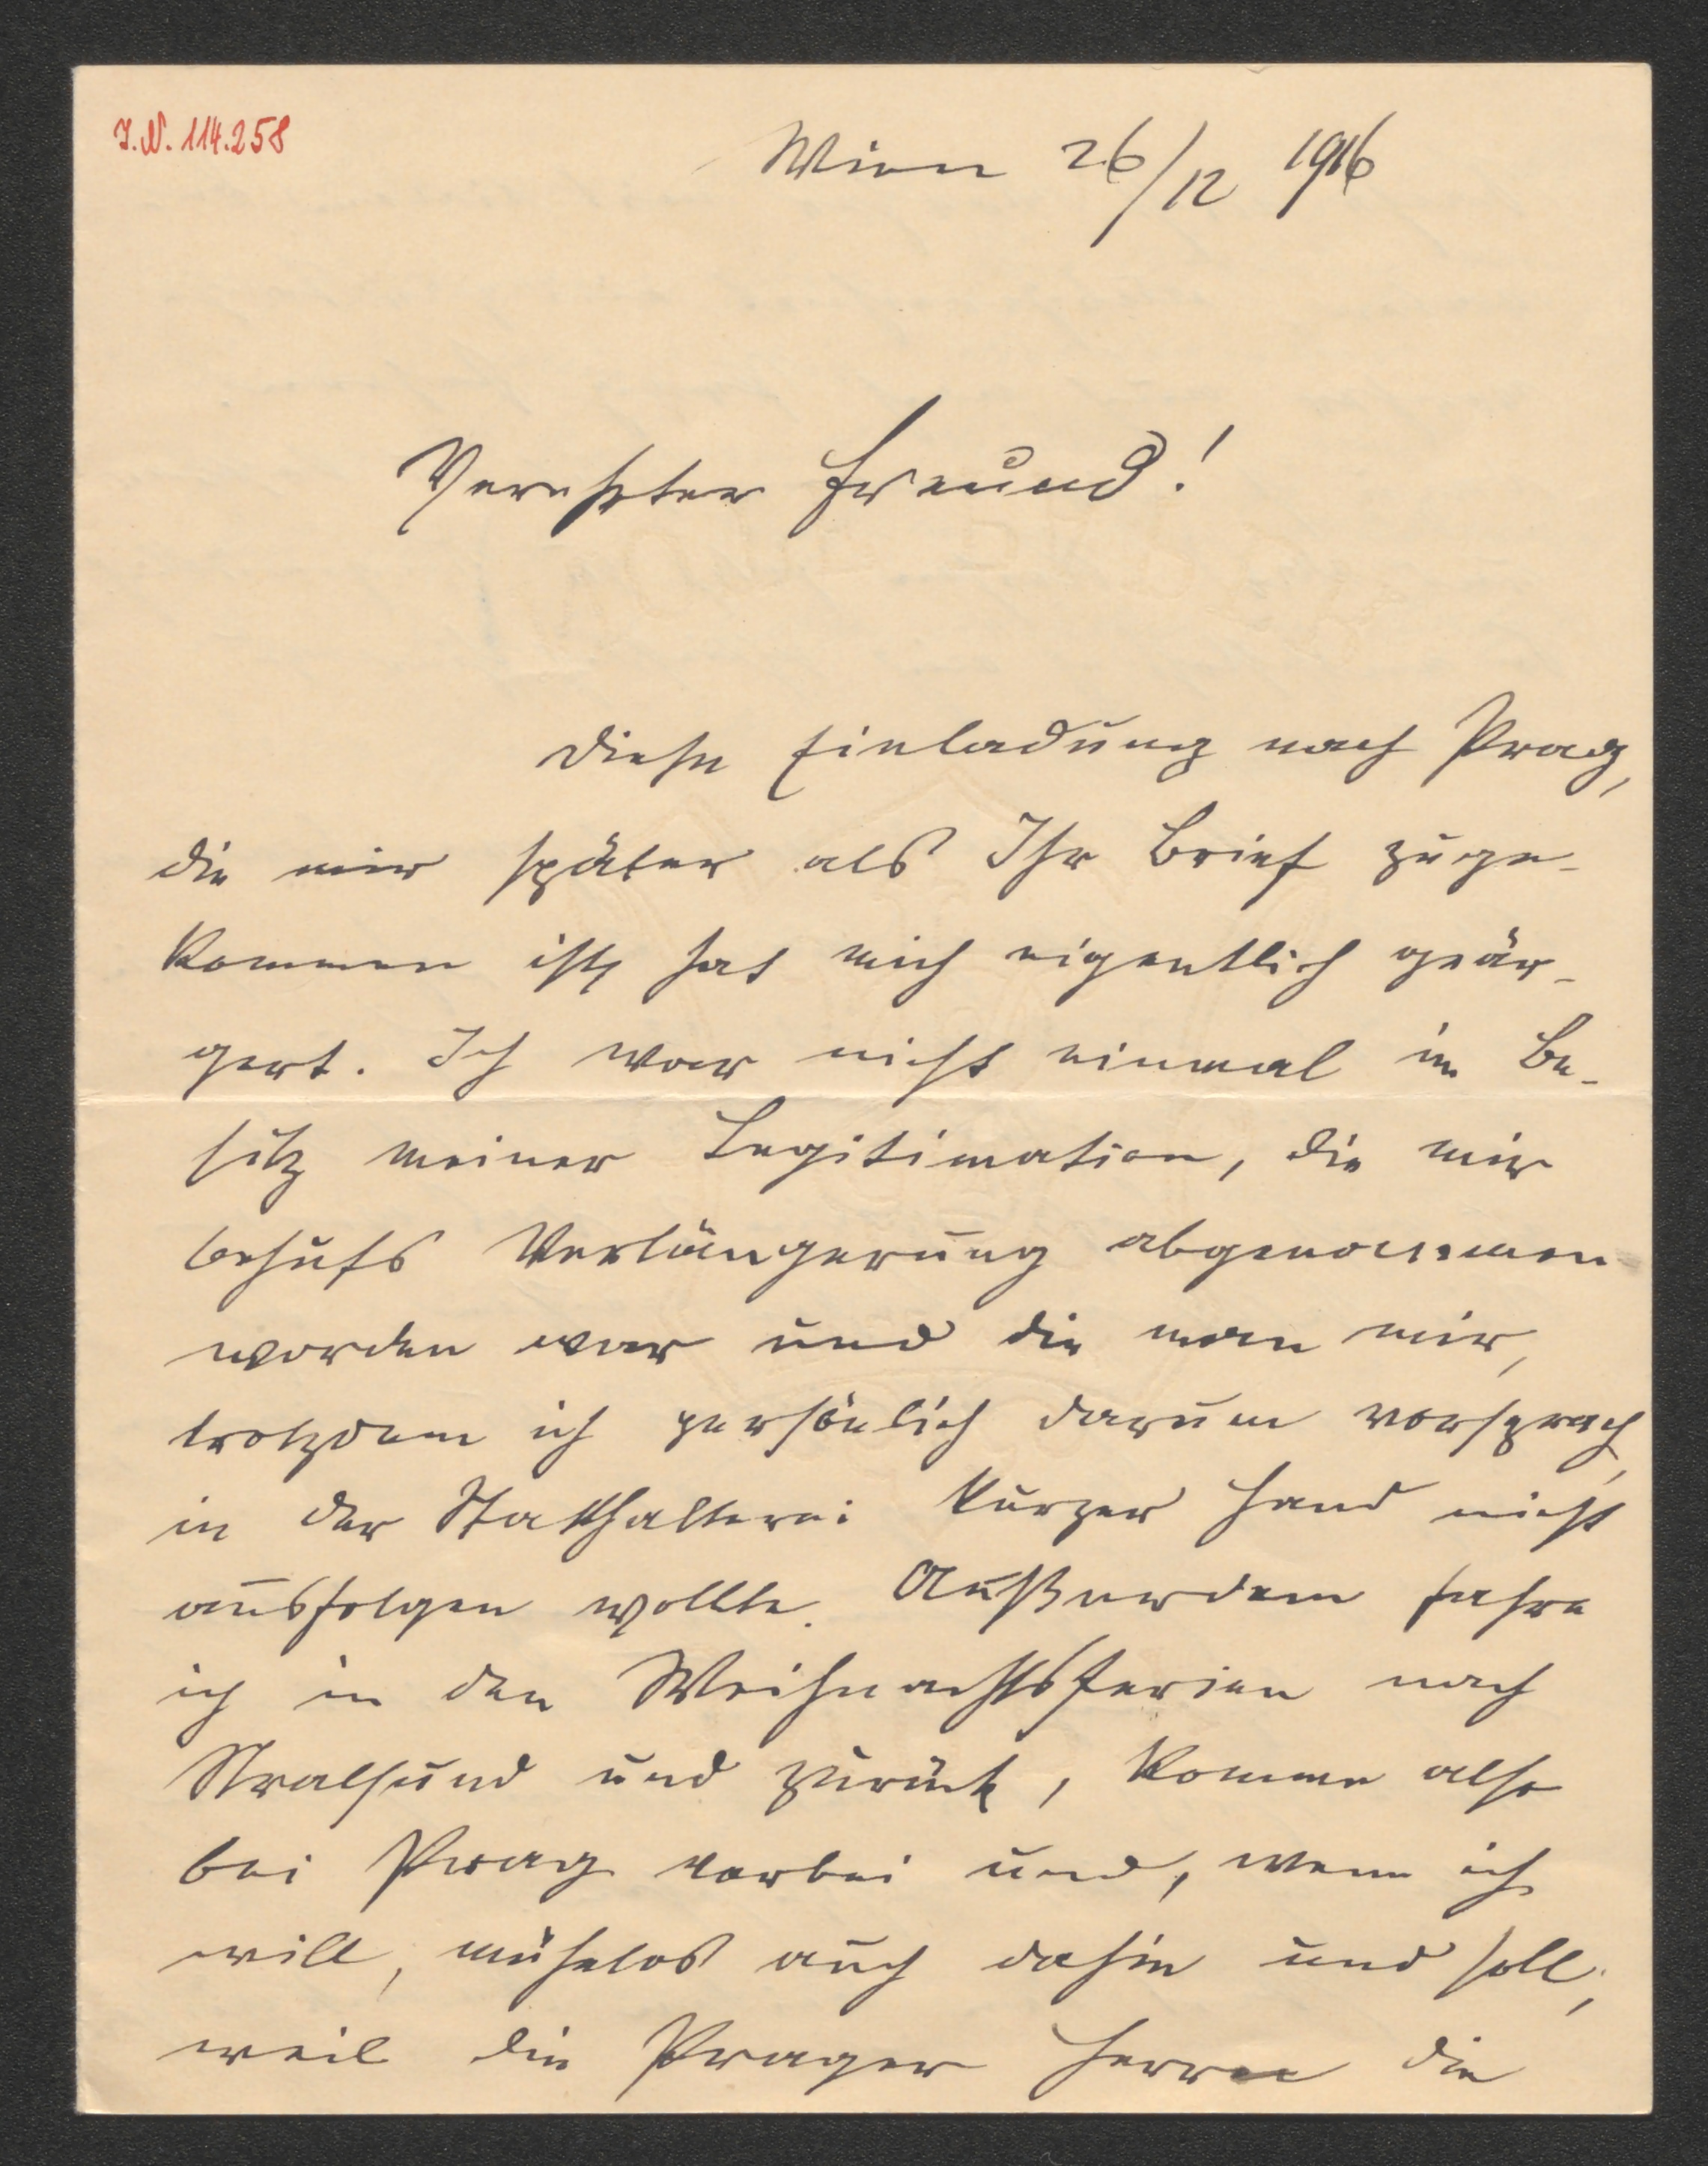 I.N. 114.258
Wien 26/12 1916
Verehrter Freund!
Diese Einladung nach Prag,
die mir später als Ihr Brief zuge-
kommen ist, hat mich eigentlich geär-
gert. Ich war nicht einmal im Be-
sitz meiner Legitimation, die mir
behufs Verlängerung abgenommen
worden war und die man mir,
trotzdem ich persönlich darum vorsprach,
in der Statthalterei kurzer Hand nicht
ausfolgen wollte. Außerdem fahre
ich in den Weihnachtsferien nach
Stralsund und zurück, komme also
bei Prag vorbei und, wenn ich
will, mühelos auch dahin und soll,
weil die Prager Herren die